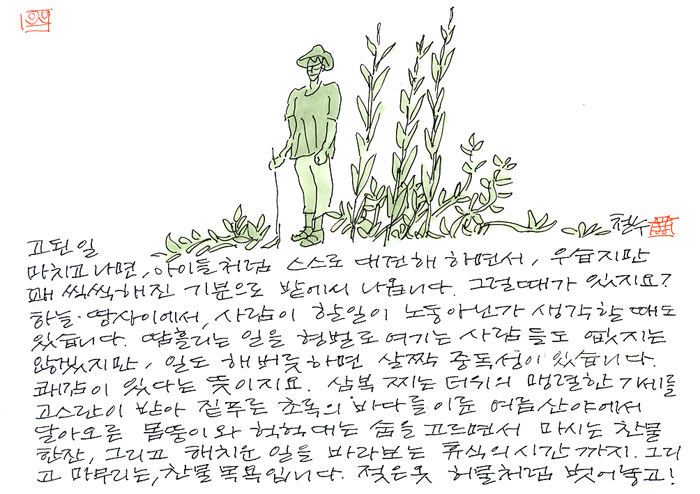 철수
고된 일
마치고나면, 아이들처럼 스스로 대견해 하면서, 우습지만
꽤 씩씩해진 기분으로 밭에서 나옵니다. 그럴때가 있지요?
하늘·땅사이에서, 사람이 할일이 노동아닌가 생각할 때도
있습니다. 땀흘리는 일을 형벌로 여기는 사람들도 없지는
않겠지만, 일도 해버릇하면 살짝 중독성이 있습니다.
쾌감이 있다는 뜻이지요. 삼복 찌는 더위의 맹렬한 기세를
고스란히 받아 짙푸른 초록의 바다를 이룬 여름산야에서
달아오른 몸뚱이와 헉헉대는 숨을 고르면서 마시는 찬물
한잔, 그리고 해치운 일을 바라보는 휴식의 시간까지. 그리
고 마무리는, 찬물 목욕입니다. 젖은옷 허물처럼 벗어놓고!